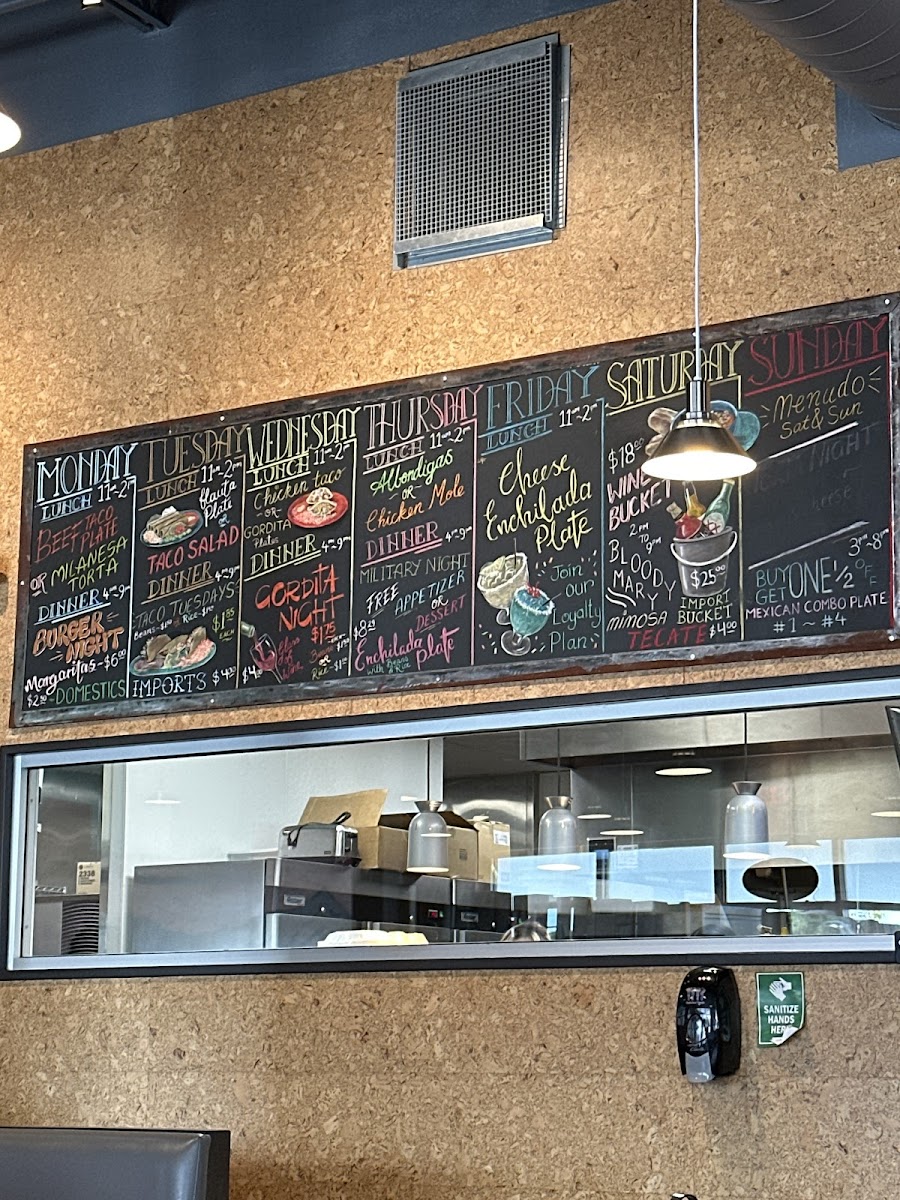 MONDAY
LUNCH 11am-2pm
BEEF TACO
PLATE
OR MILANESA
TORTA
DINNER 4pm-9pm
BURGER
NIGHT
Margaritas-$6.00
$2.50-DOMESTICS
TUESDAY
LUNCH 11am-2pm
flauta
Plate
or
TACO SALAD
DINNER 4pm-9pm
TACO TUESDAYS
$1.85
EACH
IMPORTS
WEDNESDAY
LUNCH 11am-2pm
Chicken taco
-OR-
GORDITA
Plates
DINNER 4pm-9pm
GORDITA
NIGHT
$1.75
Glass
of
Wine
Rice
THURSDAY
LUNCH 11am-2pm
Albondigas
OR
Chicken Mole
DINNER 4pm-9pm
MILITARY NIGHT
FREE APPETIZER
OR
DESSERT
$8.29
Enchilada Plate
with Beans
& Rice
FRIDAY
LUNCH 11am-2pm
Cheese
Enchilada
Plate
Join
our
Loyalty
Plan
SATURDAY
$18.00
WINE
BUCKET
2pm
TO
9pm
BLOODY
MARY
mimosa
TECATE $4.00
$25.00
IMPORT
BUCKET
SUNDAY
Menudo
Sat & Sun
NIGHT
3pm-8pm
BUY ONE 1/2 OFF
GET
MEXICAN COMBO PLATE
#1 ~ #4
2338
SANITIZE
HANDS
HERE